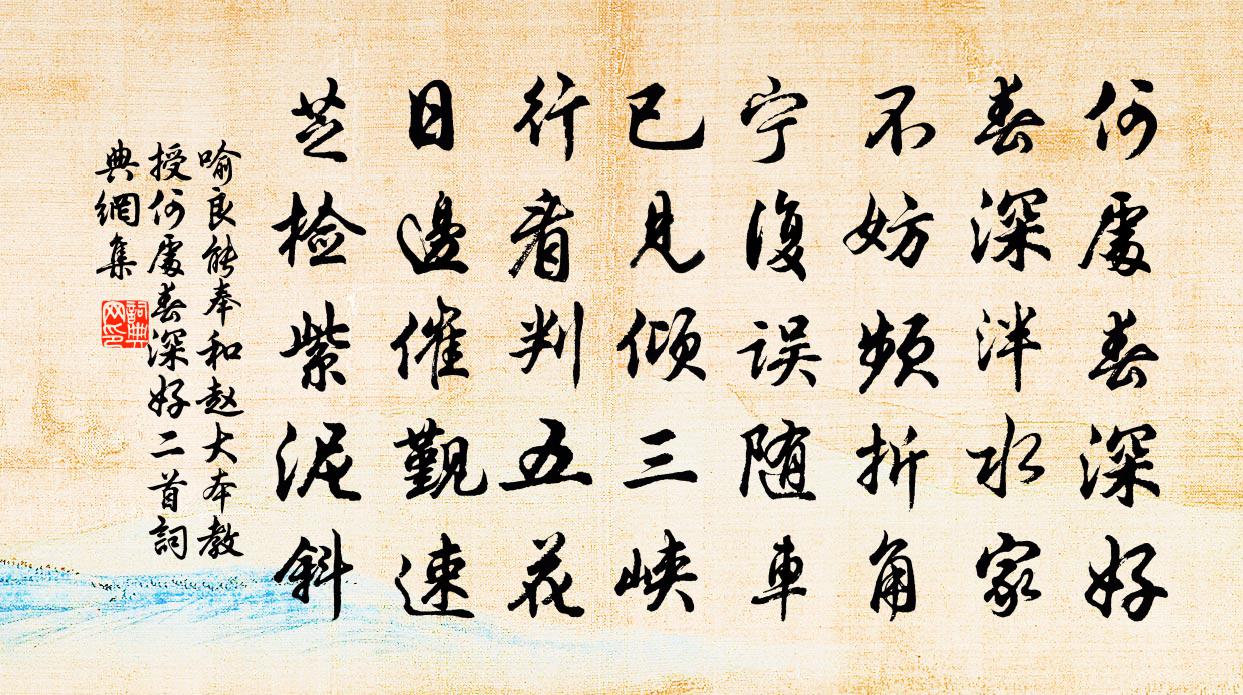 何處春深好
春深泮水家
不妨頻折角
宁復误随車
已見倾三峡
行看判五花
日邊催觐速
芝检紫泥斜
喻良能奉和赵大本教
授何處春深好二首詞
典網集
詞典
网印